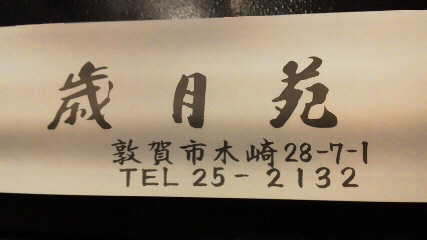 歳月苑
敦賀市木崎28-7-1
TEL 25-2132